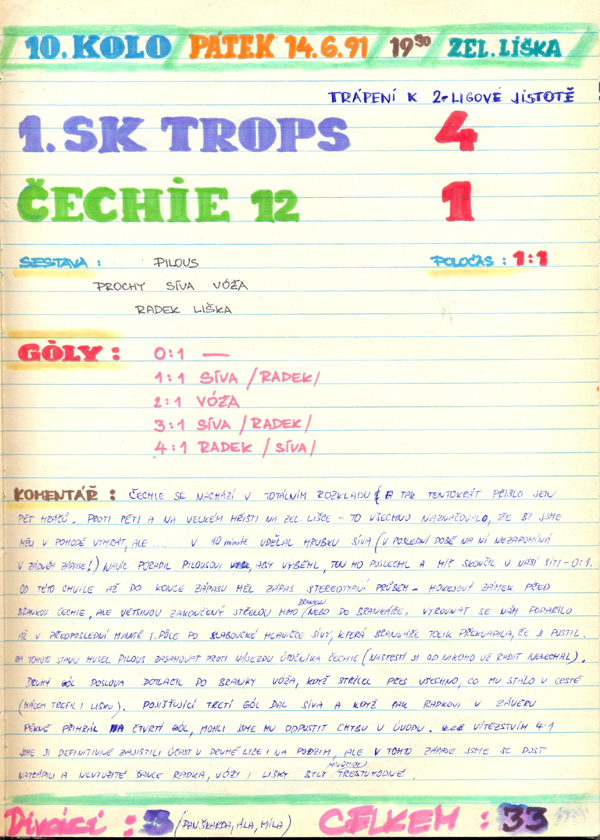 10. KOLO / PÁTEK 14.6.91 / 19³⁰ / ZEL. LIŠKA
TRÁPENÍ K 2-LIGOVÉ JISTOTĚ
1. SK TROPS 4
ČECHIE 12 1
SESTAVA : PILOUS POLOČAS : 1:1
PROCHY SÍVA VÓŽA
RADEK LIŠKA
GÓLY : 0:1 —
1:1 SÍVA /RADEK/
2:1 VÓŽA
3:1 SÍVA /RADEK/
4:1 RADEK /SÍVA/
KOMENTÁŘ : ČECHIE SE NACHÁZÍ V TOTÁLNÍM ROZKLADU A TAK TENTOKRÁT PŘIŠLO JEN
PĚT HRÁČŮ. PROTI PĚTI A NA VELKÉM HŘIŠTI NA ZEL. LIŠCE - TO VŠECHNO NAZNAČOVALO, ŽE BY JSME
MĚLI V POHODĚ VYHRÁT, ALE .... V 10 minutě UDĚLAL HRUBKU SÍVA (V POSLEDNÍ DOBĚ NA NÍ NEZAPOMÍNÁ
V ŽÁDNÉM ZÁPASE!) NAVÍC PORADIL PILOUSOVI, ABY VYBĚHL, TEN HO POSLECHL A MÍČ SKONČIL V NAŠÍ SÍTI - 0:1.
OD TÉTO CHVÍLE AŽ DO KONCE ZÁPASU MĚL ZÁPAS STEREOTYPNÍ PRŮBĚH - HOKEJOVÝ ZÁMEK PŘED
BRANKOU ČECHIE, ALE VĚTŠINOU ZAKONČENÝ STŘELOU MIMO BRANKU NEBO DO BRANKÁŘE. VYROVNAT SE NÁM PODAŘILO
AŽ V PŘEDPOSLEDNÍ MINUTĚ 1. PŮLE PO SLABOUČKÉ HLAVIČCE SÍVY, KTERÁ BRANKÁŘE TOLIK PŘEKVAPILA, ŽE JI PUSTIL.
ZA TOHOTO STAVU MUSEL PILOUS ZASAHOVAT PROTI VÁJEZDU ÚTOČNÍKA ČECHIE (NAŠTĚSTÍ SI OD NIKOHO UŽ RADIT NENECHAL).
DRUHÝ GÓL DOSLOVA DOTLAČIL DO BRANKY VÓŽA, KDYŽ STŘÍLEL PŘES VŠECHNO, CO MU STÁLO V CESTĚ
(MÁLEM TREFIL I LIŠKU). POJIŠŤUJÍCÍ TŘETÍ GÓL DAL SÍVA A KDYŽ PAK RADKOVI V ZÁVĚRU
PĚKNĚ PŘIHRÁL NA ČTVRTÝ GÓL, MOHLI JSME MU ODPUSTIT CHYBU V ÚVODU. VÍTĚZSTVÍM 4:1
JSME SI DEFINITIVNĚ ZAJISTILI ÚČAST V DRUHÉ LIZE I NA PODZIM, ALE V TOMTO ZÁPASE JSME SE DOST
NATRÁPILI A NEVYUŽITÉ ŠANCE RADKA, VÓŽI I LIŠKY BYLY TRESTUHODNÉ.
Diváci : 3 (PAN ŠKARDA, ÁLA, MÍLA) CELKEM : 33